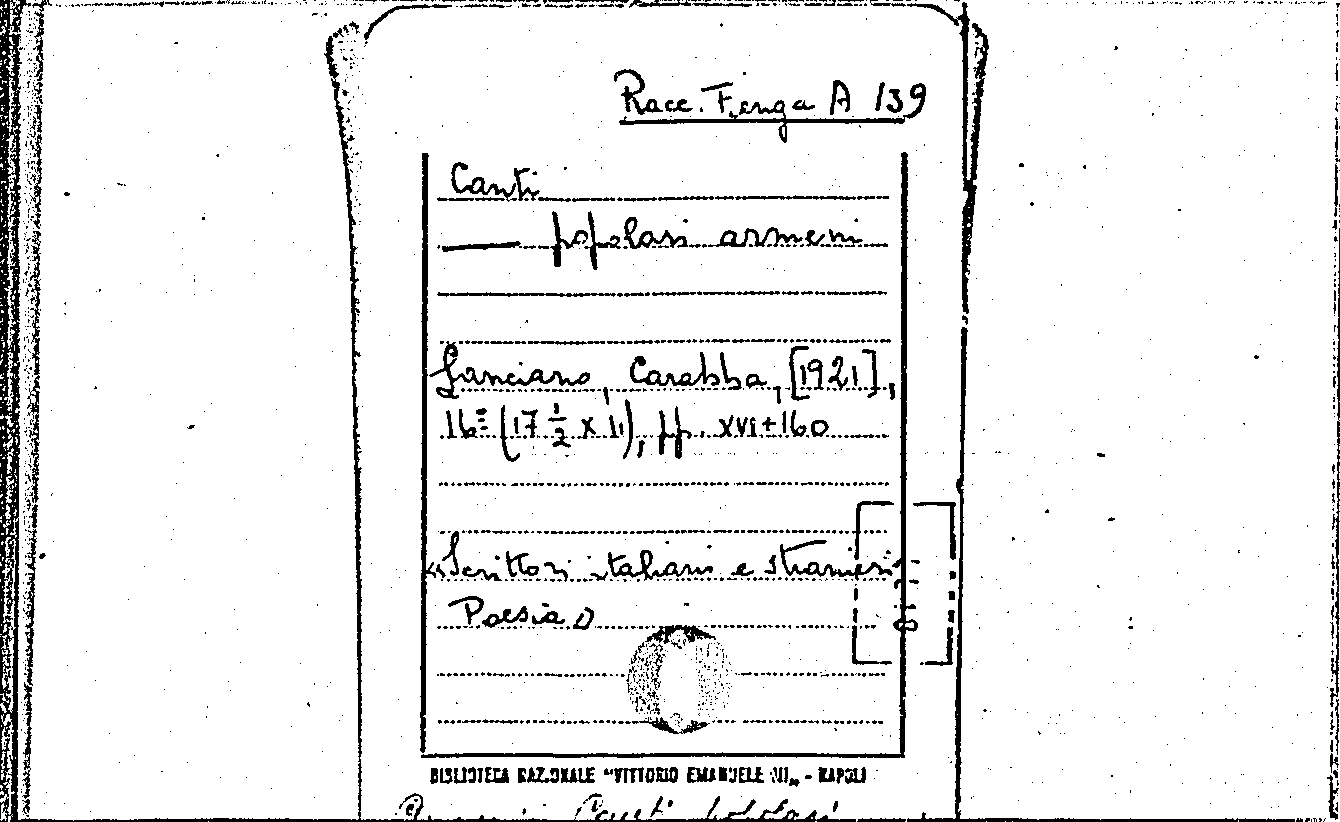 Racc. Fenga A 139
Canti
—— popolari armeni
Lanciano, Carabba, [1921],
16º (17 ½ x 11), pp. XVI+160
«Scrittori italiani e stranieri
Poesia»
BIBLIOTECA NAZIONALE "VITTORIO EMANUELE III„ - NAPOLI
Canti popolari